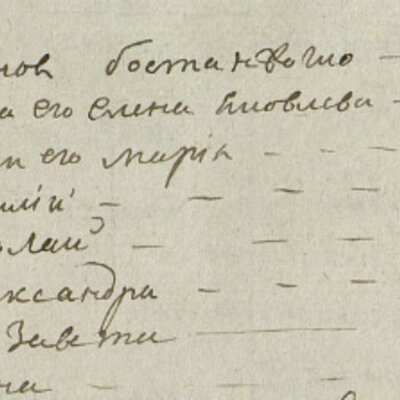 нов бостанжогло —
а его елена яковлева -
и его марія - - -
илій - — - —
олай — — —
ександра - - —
Завета —
на - - -